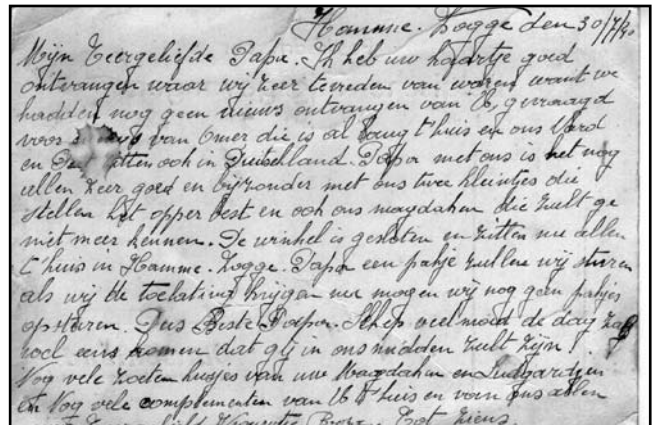 Hamme. Zogge den 30/7/40
Mijn Teergeliefde Papa. Ik heb uw kaartje goed
ontvangen waar wij zeer tevreden van waren want we
hadden nog geen nieuws ontvangen van U, gevraagd
voor van Omer die is al lang t'huis en ons
en ook in Duitschland. Papa met ons is het nog
allen zeer goed en bijzonder met ons twee kleintjes die
stellen het opper best en ook ons magdaken die zult ge
niet meer kennen. De winkel is gesloten en zitten nu allen
t'huis in Hamme. Zogge. Papa een pakje zullen wij sturen
als wij de toelating krijgen nu mogen wij nog geen pakjes
opsturen. Dus Beste Papa. Schep veel moed de dag zal
toch eens komen dat gij in ons midden zult zijn!
Nog vele zoeten kusjes van uw Magdaken en Ludgardjen
en Nog vele complementen van U t'huis en voor ons allen
Tot ziens.